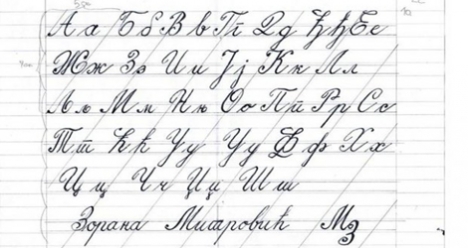 А а Б б В в Г г Д д Ђ ђ Е е
Ж ж З з И и Ј ј К к Л л
Љ љ М м Њ њ О о П п Р р С с
Т т Ћ ћ У у У у Ф ф Х х
Ц ц Ч ч Џ џ Ш ш
Зорана Митровић М3